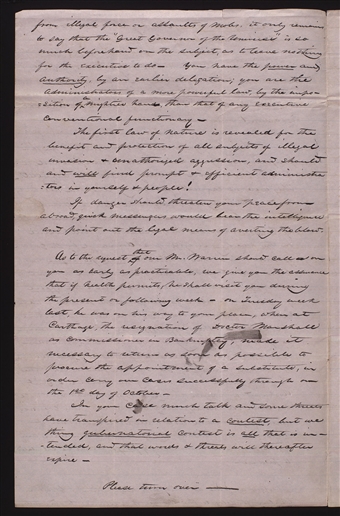 from illegal force or assaults of mobs, it only remains
to say that the "Great Governor of the Universe" is so
much beforehand on the subject, as to leave nothing
for the executive to do — You have the power and
authority, by an earlier delegation; you are the
administrators of a more powerful law, by the impo-
sition of a mightier hand, than that of any executive
conventional functionary —
The first law of nature is revealed for the
benefit and protection of all subjects of illegal
invasion & unauthorized aggression, and should
and will find prompt & efficient administra
tors in yourself & people!
If danger should threaten your peace from
abroad, quick messengers would bear the intelligence
and point out the legal means of averting the blow.
As to the request that our Mr. Warren should call on
you as early as practicable, we give you the assurance
that if health permits, he shall visit you during
the present or following week — on Tuesday week
last, he was on his way to your place, when at
Carthage, the resignation of Doctor Marshall
as commissioner in Bankruptcy, made it
necessary to return as soon as possible to
procure the appointment of a substitute, in
order carry our cases successfully through on
the 1st day of October —
In your case much talk and some threats
have transpired in relation to a contest, but we
think gubernatorial contest is all that is in-
tended, and that words & threats will thereafter
expire —
Please turn over —